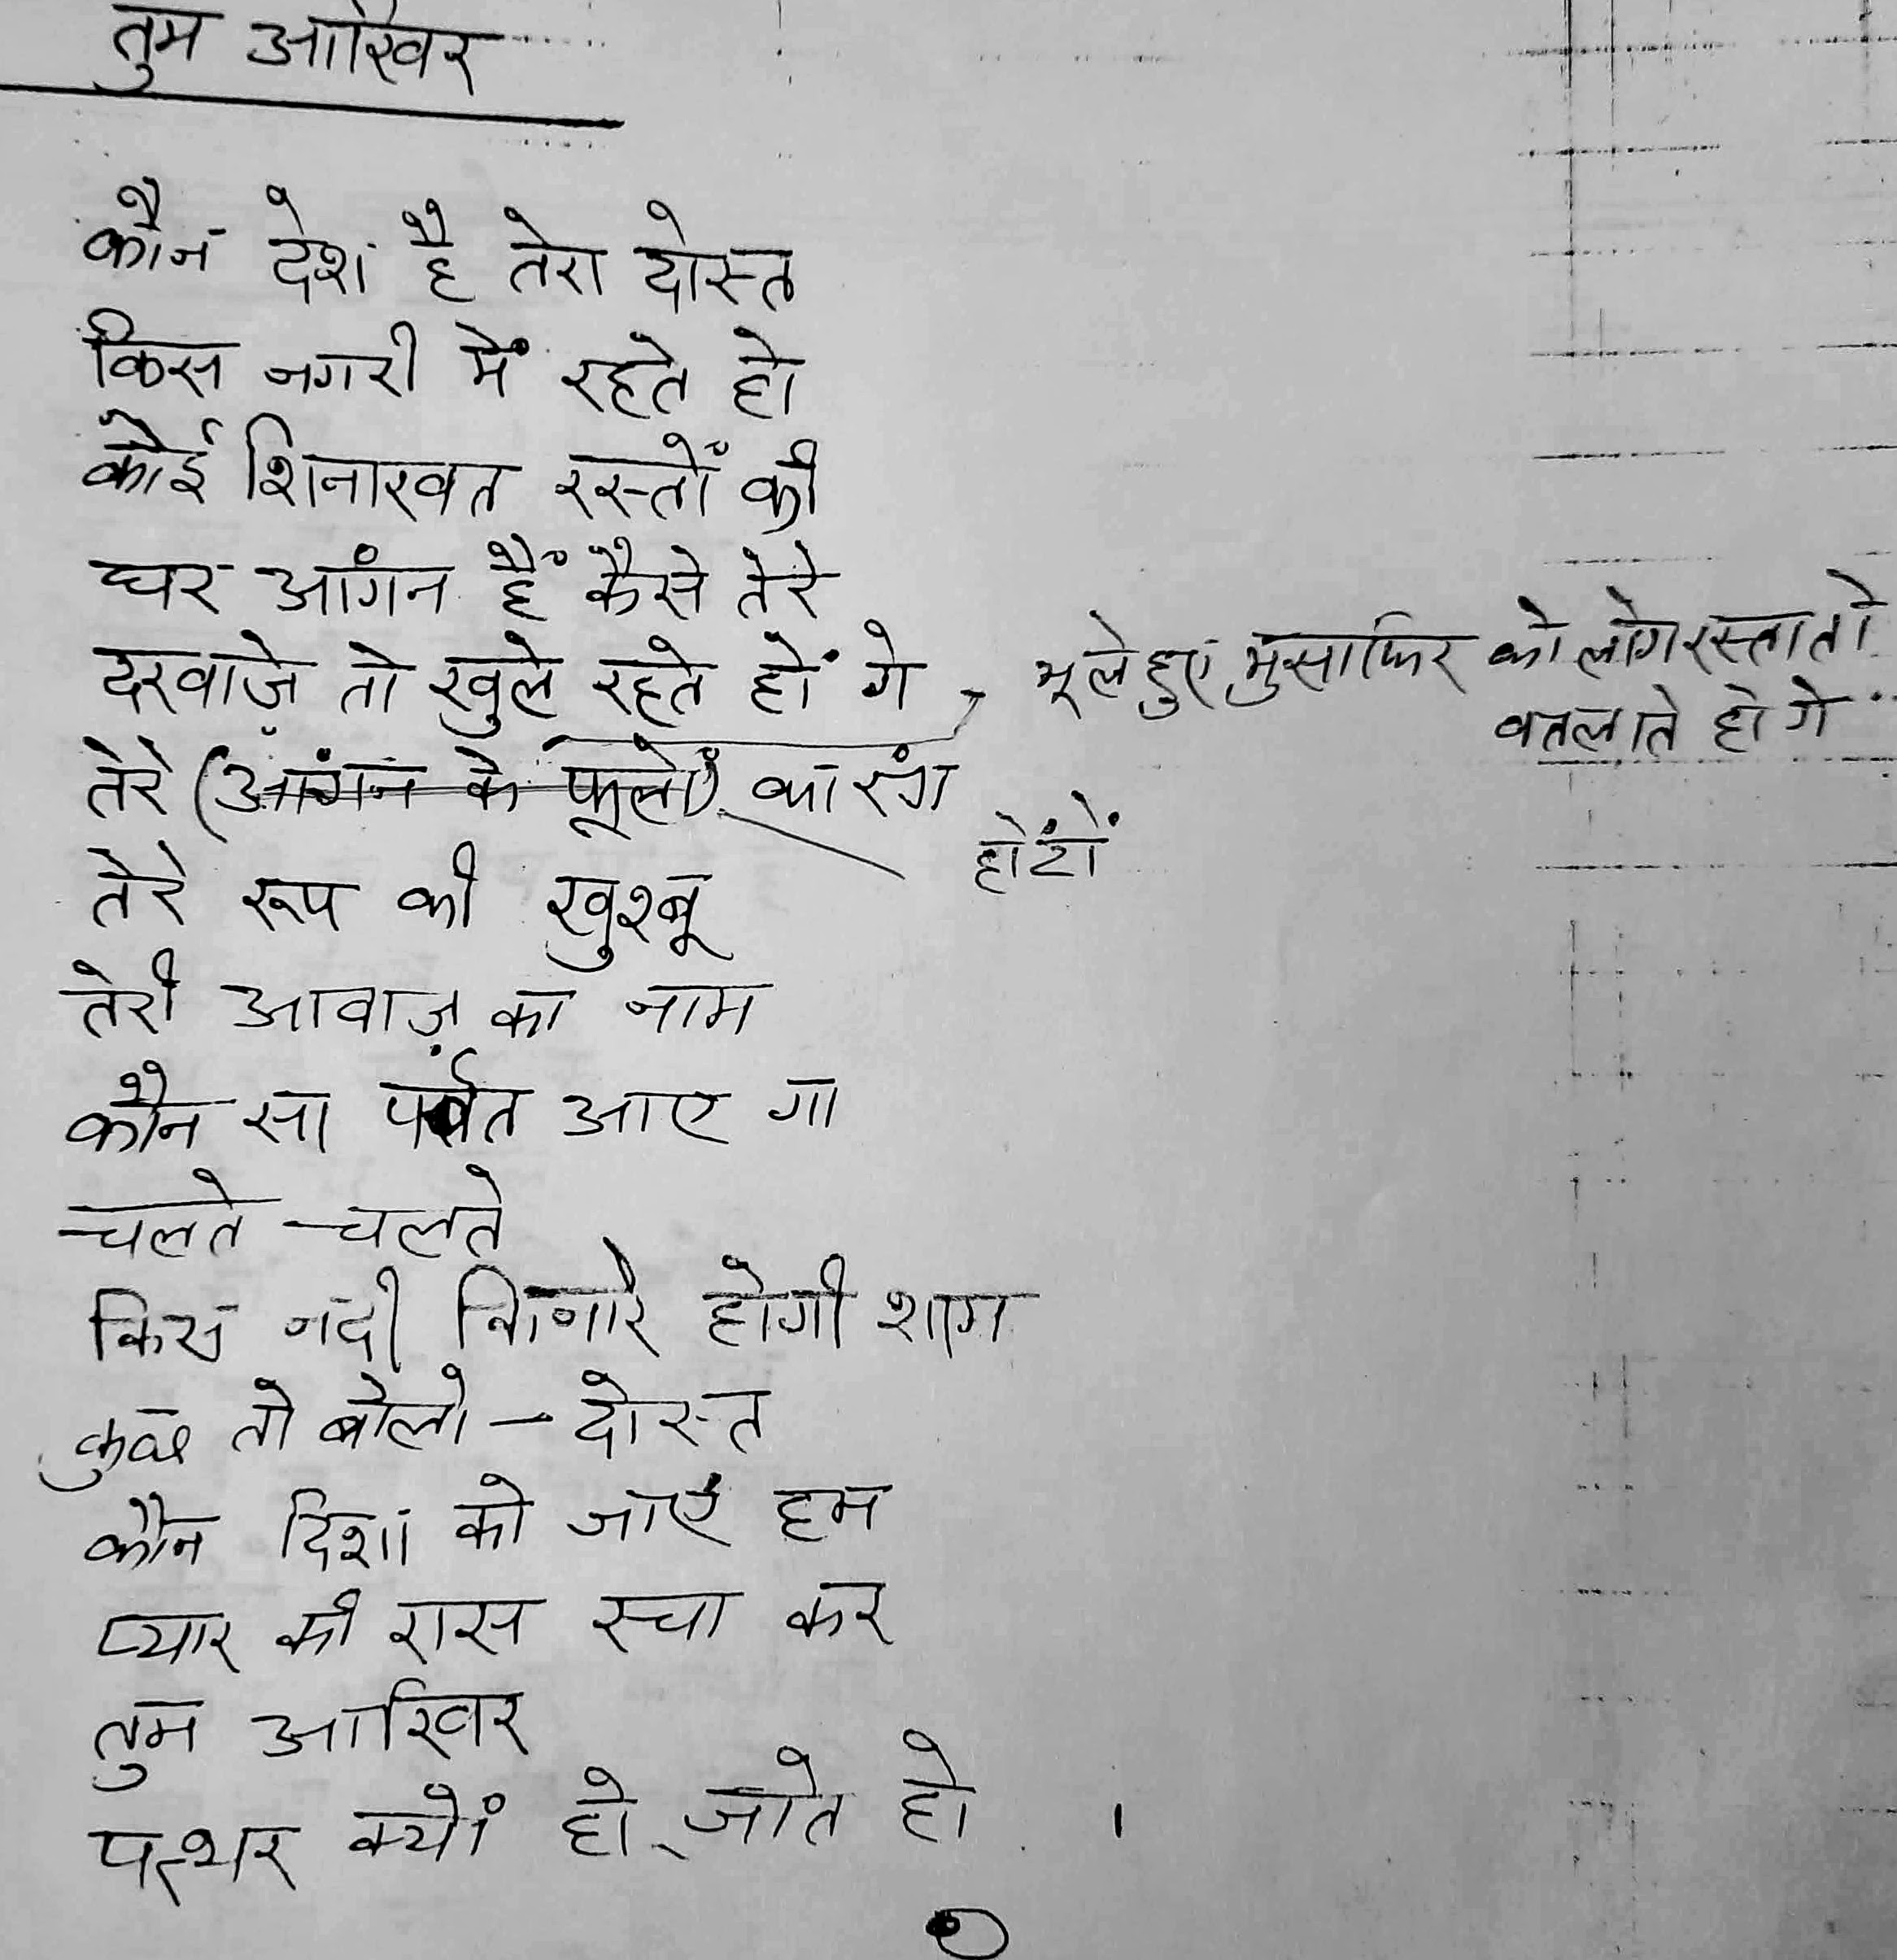 तुम आखिर
कौन देश है तेरा दोस्त
किस नगरी में रहते हो
कोई शिनाख्त रस्तों की
घर आंगन हैं कैसे तेरे
दरवाज़े तो खुले रहते हों गे
भूले हुए मुसाफिर को लोग रस्ता तो
बतलाते हों गे
तेरे (आंगन के फूलों) का रंग
होंटों
तेरे रूप की खुश्बू
तेरी आवाज़ का नाम
कौन सा पर्वत आए गा
चलते चलते
किस नदी किनारे होगी शाम
कुछ तो बोलो - दोस्त
कौन दिशा को जाएं हम
प्यार की रास रचा कर
तुम आखिर
पत्थर क्यों हो जाते हो ।